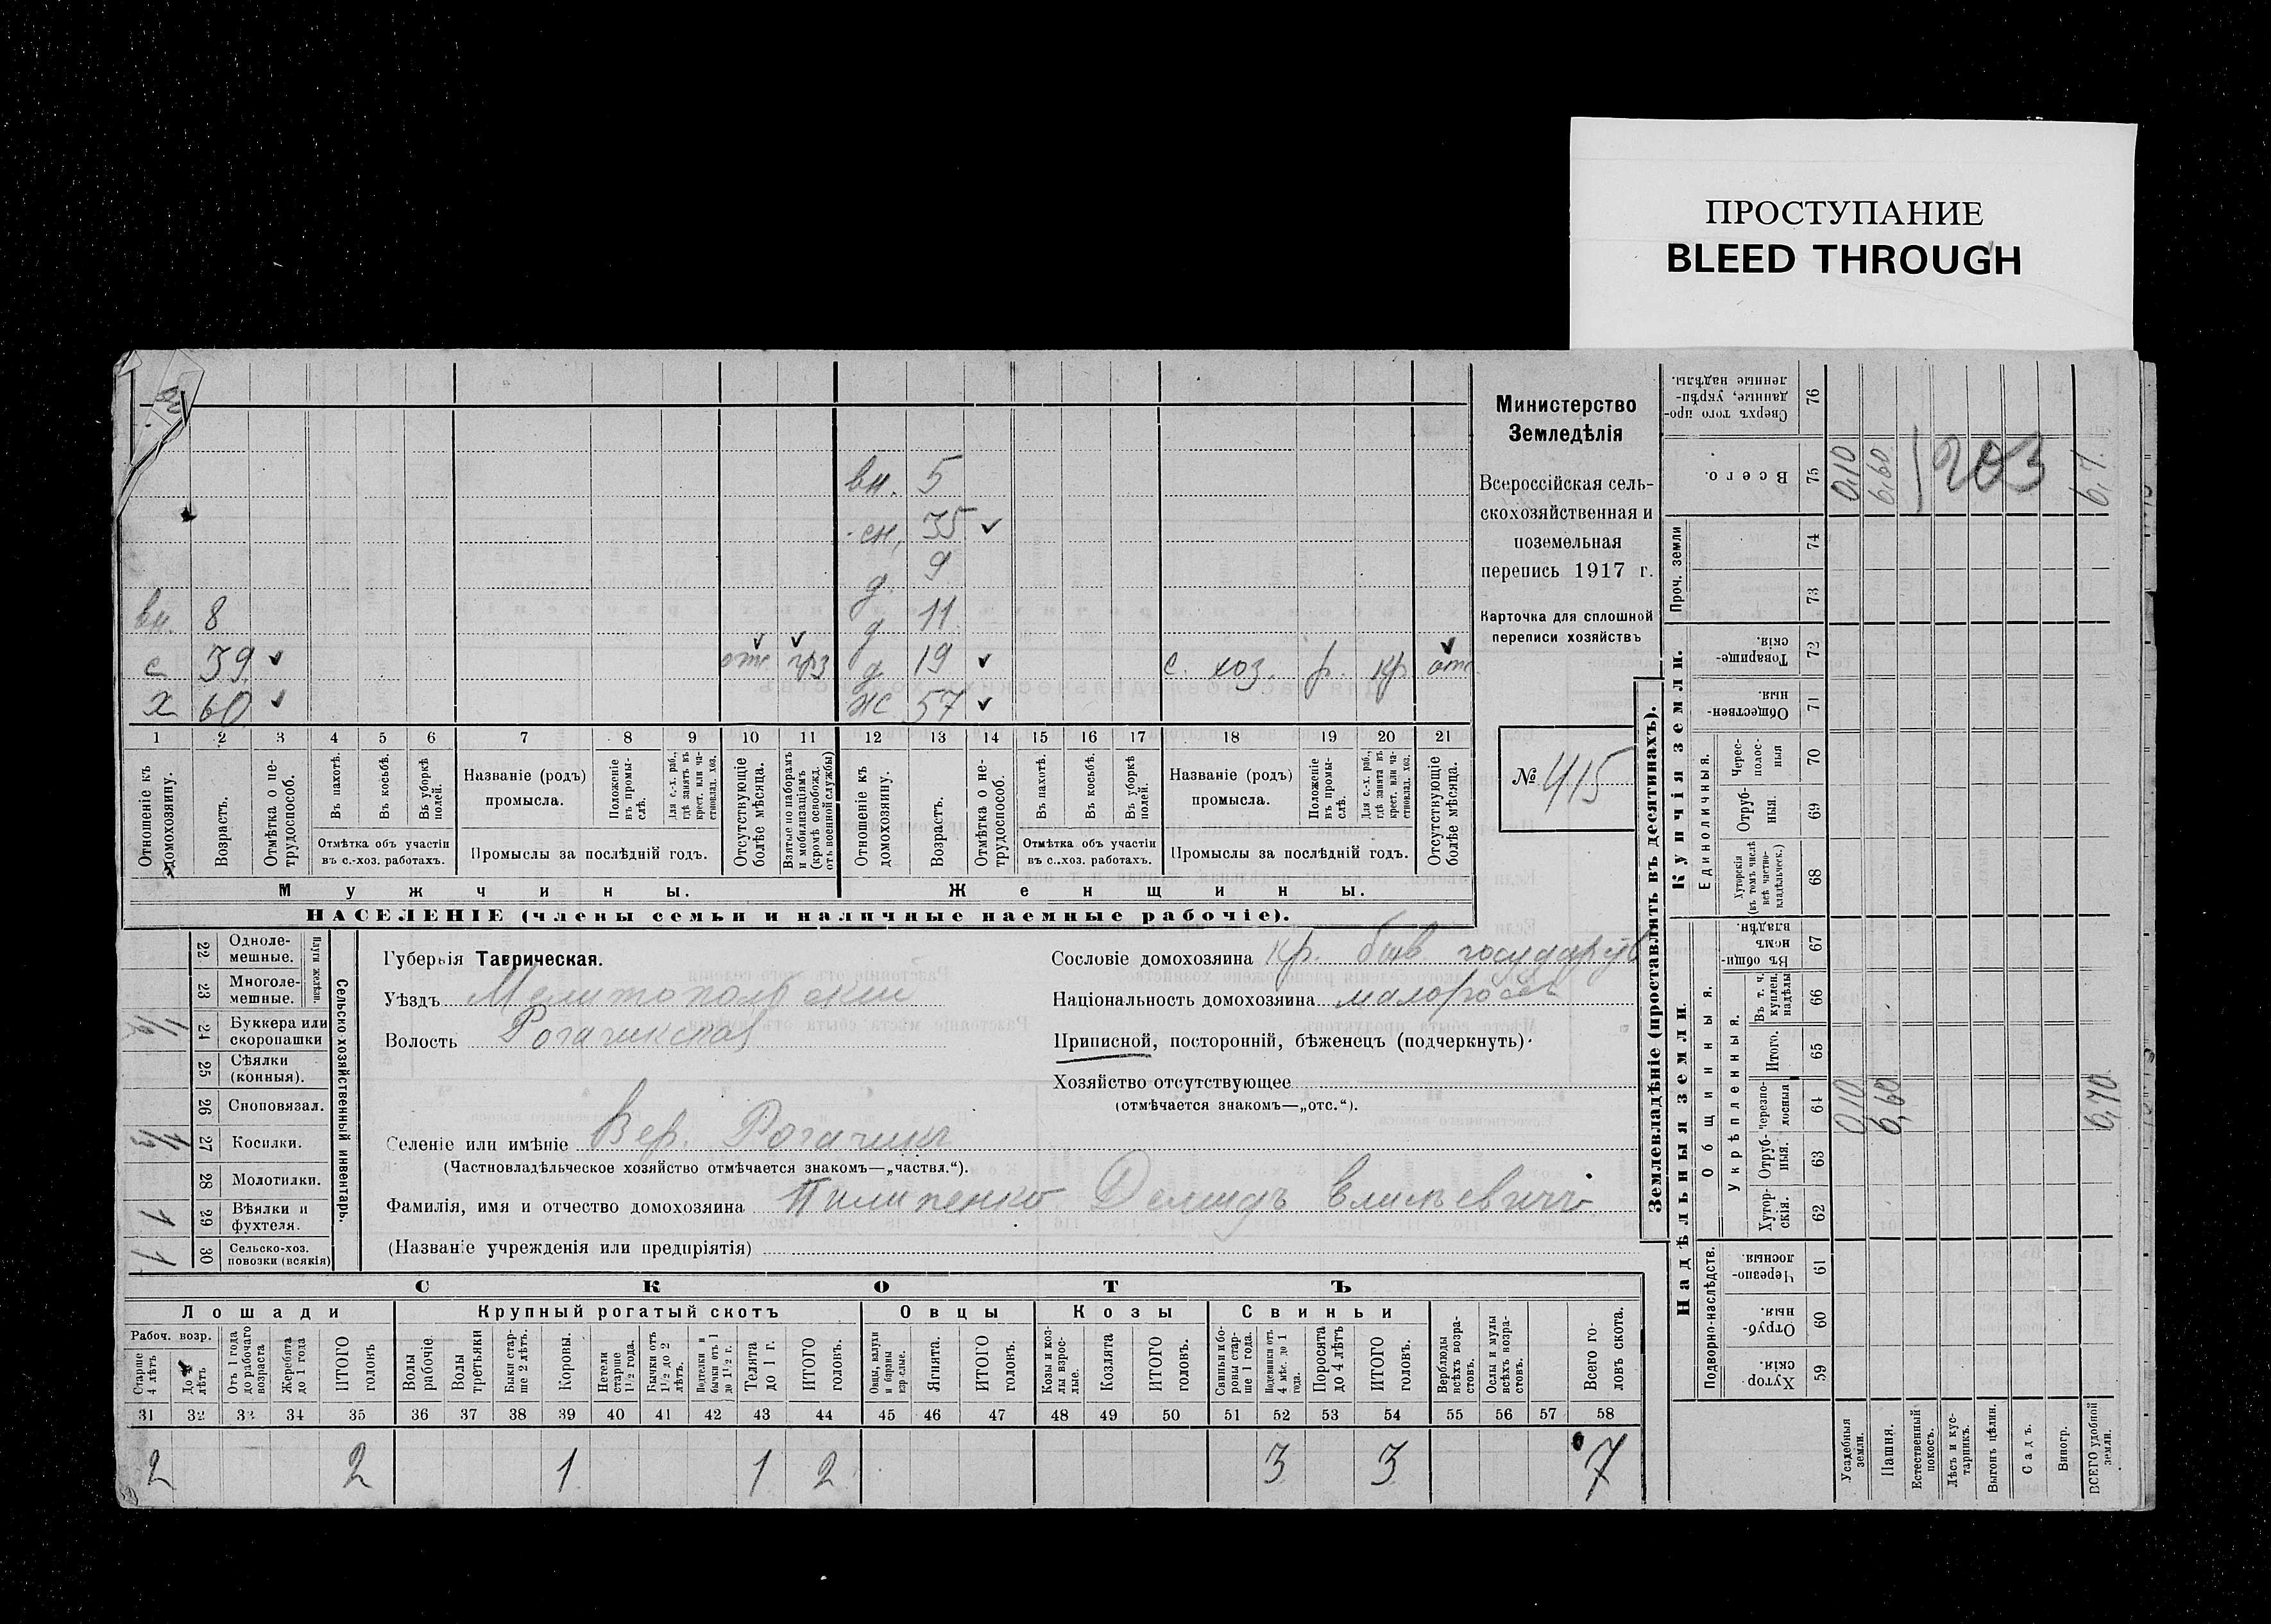 ПРОСТУПАНИЕ
BLEED THROUGH
Министерство
Земледѣлія
Всероссійская сель-
скохозяйственная и
поземельная
перепись 1917 г.
Карточка для сплошной
переписи хозяйствъ
№ 415
вн. 5
сн. 35
д. 9
вн. 8 д 11
с 39 отс д 19 с. хоз. р. кр отс
х 60 ж 57
1 2 3 4 5 6 7 8 9 10 11 12 13 14 15 16 17 18 19 20 21
Отношеніе къ домохозяину.
Возрастъ.
Отмѣтка о не-трудоспособ.
Въ пахотѣ.
Въ косьбѣ.
Въ уборкѣ полей.
Отмѣтка объ участіи
въ с.-хоз. работахъ.
Названіе (родъ)
промысла.
Положеніе въ промы-слѣ.
Для с.-х. раб., гдѣ занятъ въ крест. или ча-стновлад. хоз.
Промыслы за послѣдній годъ.
Отсутствующіе болѣе мѣсяца.
Взятые по наборамъ и мобилизаціямъ (кромѣ освобожд. отъ военной службы)
Отношеніе къ домохозяину.
Возрастъ.
Отмѣтка о не-трудоспособ.
Въ пахотѣ.
Въ косьбѣ.
Въ уборкѣ полей.
Отмѣтка объ участіи
въ с..хоз. работахъ.
Названіе (родъ)
промысла.
Положеніе въ промы-слѣ.
Для с.-х. раб., гдѣ занята въ крест. или ча-стновлад. хоз.
Промыслы за послѣдній годъ.
Отсутствующіе болѣе мѣсяца.
Мужчины. Женщины.
НАСЕЛЕНІЕ (члены семьи и наличные наемные рабочіе).
Сельско хозяйственный инвентарь.
Плуги желѣзн.
22 Одноле-
мешные.
23 Многоле-
мешные.
24 Буккера или
скоропашки
25 Сѣялки
(конныя).
26 Сноповязал.
27 Косилки.
28 Молотилки.
1 29 Вѣялки и
фухтеля.
1 30 Сельско-хоз.
повозки (всякія)
Губернія Таврическая.
Уѣздъ Мелитопольскій
Волость Рогачикская
Селеніе или имѣніе Вер. Рогачикъ
(Частновладѣльческое хозяйство отмѣчается знакомъ—„частвл.“).
Фамилія, имя и отчество домохозяина Пилипенко Демидъ Елисѣевичъ
(Названіе учрежденія или предпріятія)
Сословіе домохозяина Кр. быв государств
Національность домохозяина малоросс
Приписной, посторонній, бѣженецъ (подчеркнуть)
Хозяйство отсутствующее
(отмѣчается знакомъ—„отс.“).
СКОТЪ
Лошади Крупный рогатый скотъ Овцы Козы Свиньи
Рабоч. возр.
Старше 4 лѣтъ
До 4 лѣтъ
Отъ 1 года до рабочаго возраста
Жеребята до 1 года
ИТОГО головъ
Волы рабочіе.
Волы третьяки
Быки стар-ше 2 лѣтъ.
Коровы.
Нетели старше 1 1/2 года.
Бычки отъ 1 1/2 до 2 лѣтъ.
Подтелки и бычки отъ 1 до 1 1/2 г.
Телята до 1 г.
ИТОГО головъ.
Овцы, валухи и бараны взр-слые.
Ягнята.
ИТОГО головъ.
Козы и коз-лы взрос-лые.
Козлята
ИТОГО головъ.
Свиньи бо-ровы стар-ше 1 года.
Подсвинки отъ 4 мѣс. до 1 года.
Поросята до 4 лѣтъ
ИТОГО головъ.
Верблюды всѣхъ возра-стовъ.
Ослы и мулы всѣхъ возра-стовъ.
Всего го-ловъ скота.
31 32 33 34 35 36 37 38 39 40 41 42 43 44 45 46 47 48 49 50 51 52 53 54 55 56 57 58
2 2 1 1 2 3 3 7
Землевладѣніе (проставлять въ десятинахъ).
Купчія земли.
Надѣльныя земли.
Проч. земли
Единоличныя.
Общинныя.
Укрѣпленныя.
Подворно-наслѣдств.
76 Сверхъ того про-данные, укрѣп-ленные надѣлы.
75 Всего. 0,10 6,60 203 6,7
74
73
72 Товарище-скія.
71 Обществен-ныя
70 Черес-полос-ныя
69 Отруб-ныя.
68 Хуторскія (въ томъ числѣ всѣ частно-владѣльческ.)
67 Въ общи-номъ владѣн.
66 Въ т. ч. куплен. надѣлы
65 Итого.
64 Черезпо-лосныя 0,10 6,60 6,70
63 Отруб-ныя.
62 Хутор-скія.
61 Черезпо-лосныя
60 Отруб-ныя.
59 Хутор-скія.
Усадебныя земли.
Пашня.
Естественный покосъ.
Лѣсъ и кус-тарникъ.
Выгонъ цѣлин.
Садъ.
Виногр.
ВСЕГО удобной земли.